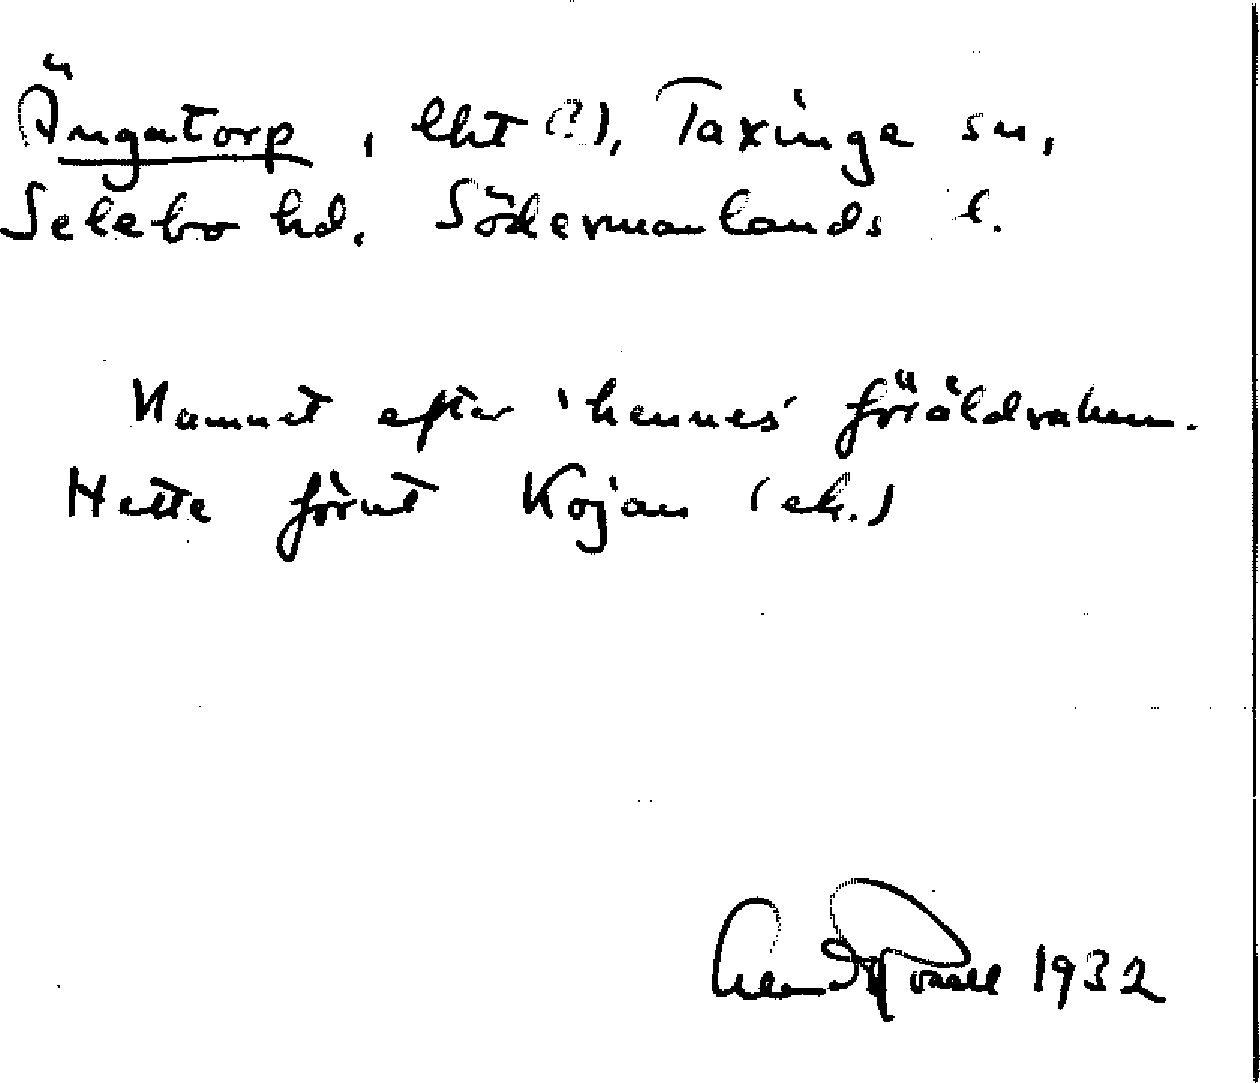 Ängatorp, lht (?), Taxinge sn,
Selebo hd. Södermanlands l.
Namnet efter 'hennes' föräldrahem.
Hette förut Kojan (ek.)
1932